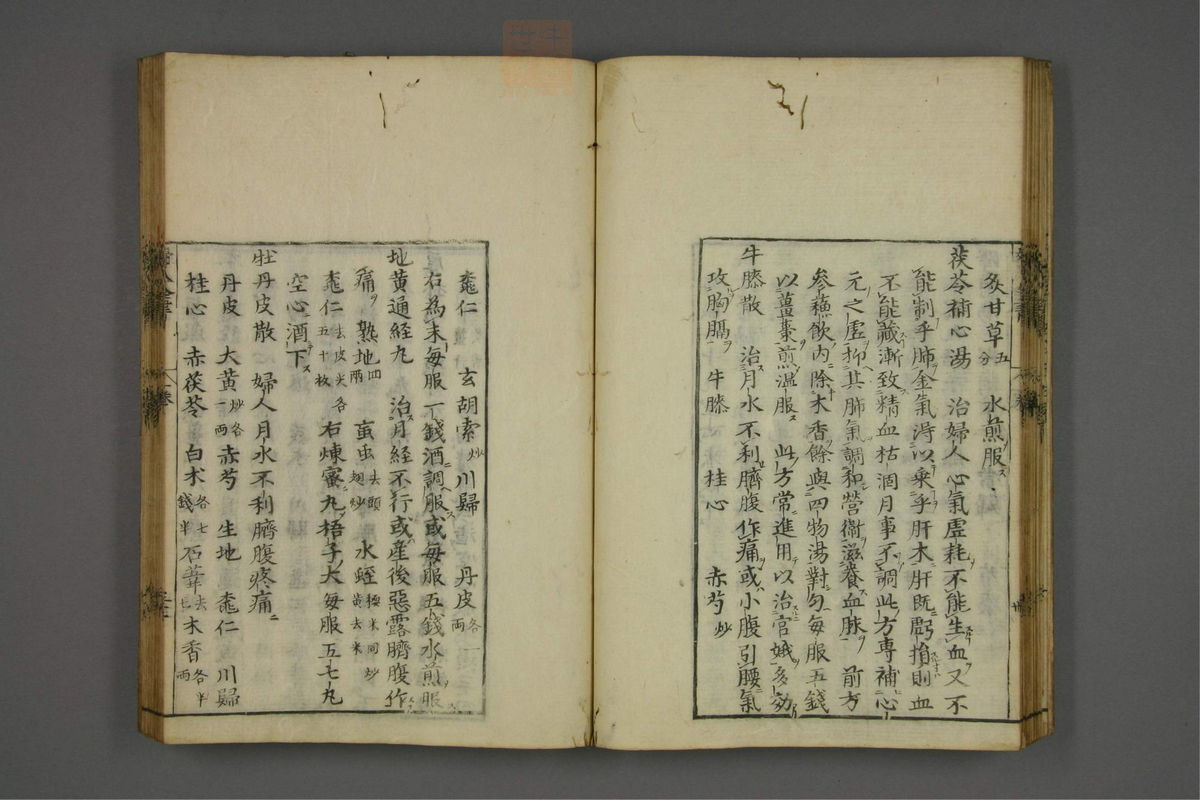 炙甘草五分　水煎服
茯苓補心湯　治婦人心氣虛耗不能生血又不
能制乎肺金氣淂以乘乎肝木肝既虧損則血
不能藏漸致精血枯涸月事不調此方專補心
元之虛抑其肺氣調和營衛滋養血脉　前方
參蘓飲內除木香餘與四物湯對勻每服五錢
以薑棗煎溫服　此方常進用以治官娥多効
牛膝散　治月水不利臍腹作痛或小腹引腰氣
攻胸膈　牛膝　桂心　赤芍炒
桃仁　玄胡索炒　川歸　丹皮各一兩
右為末每服一錢酒調服或每服五錢水煎服
地黃通経丸　治月経不行或産後惡露臍腹作
痛　熟地四兩　䖟虫去頭翅炒　水蛭糯米同炒黃去米
桃仁去皮尖各五十枚　右煉蜜丸梧子大每服五七丸
空心酒下
牡丹皮散　婦人月水不利臍腹疼痛
丹皮　大黃炒各一兩　赤芍　生地　桃仁　川歸
桂心　赤茯苓　白朮各七錢半　石葦去毛　木香各半兩